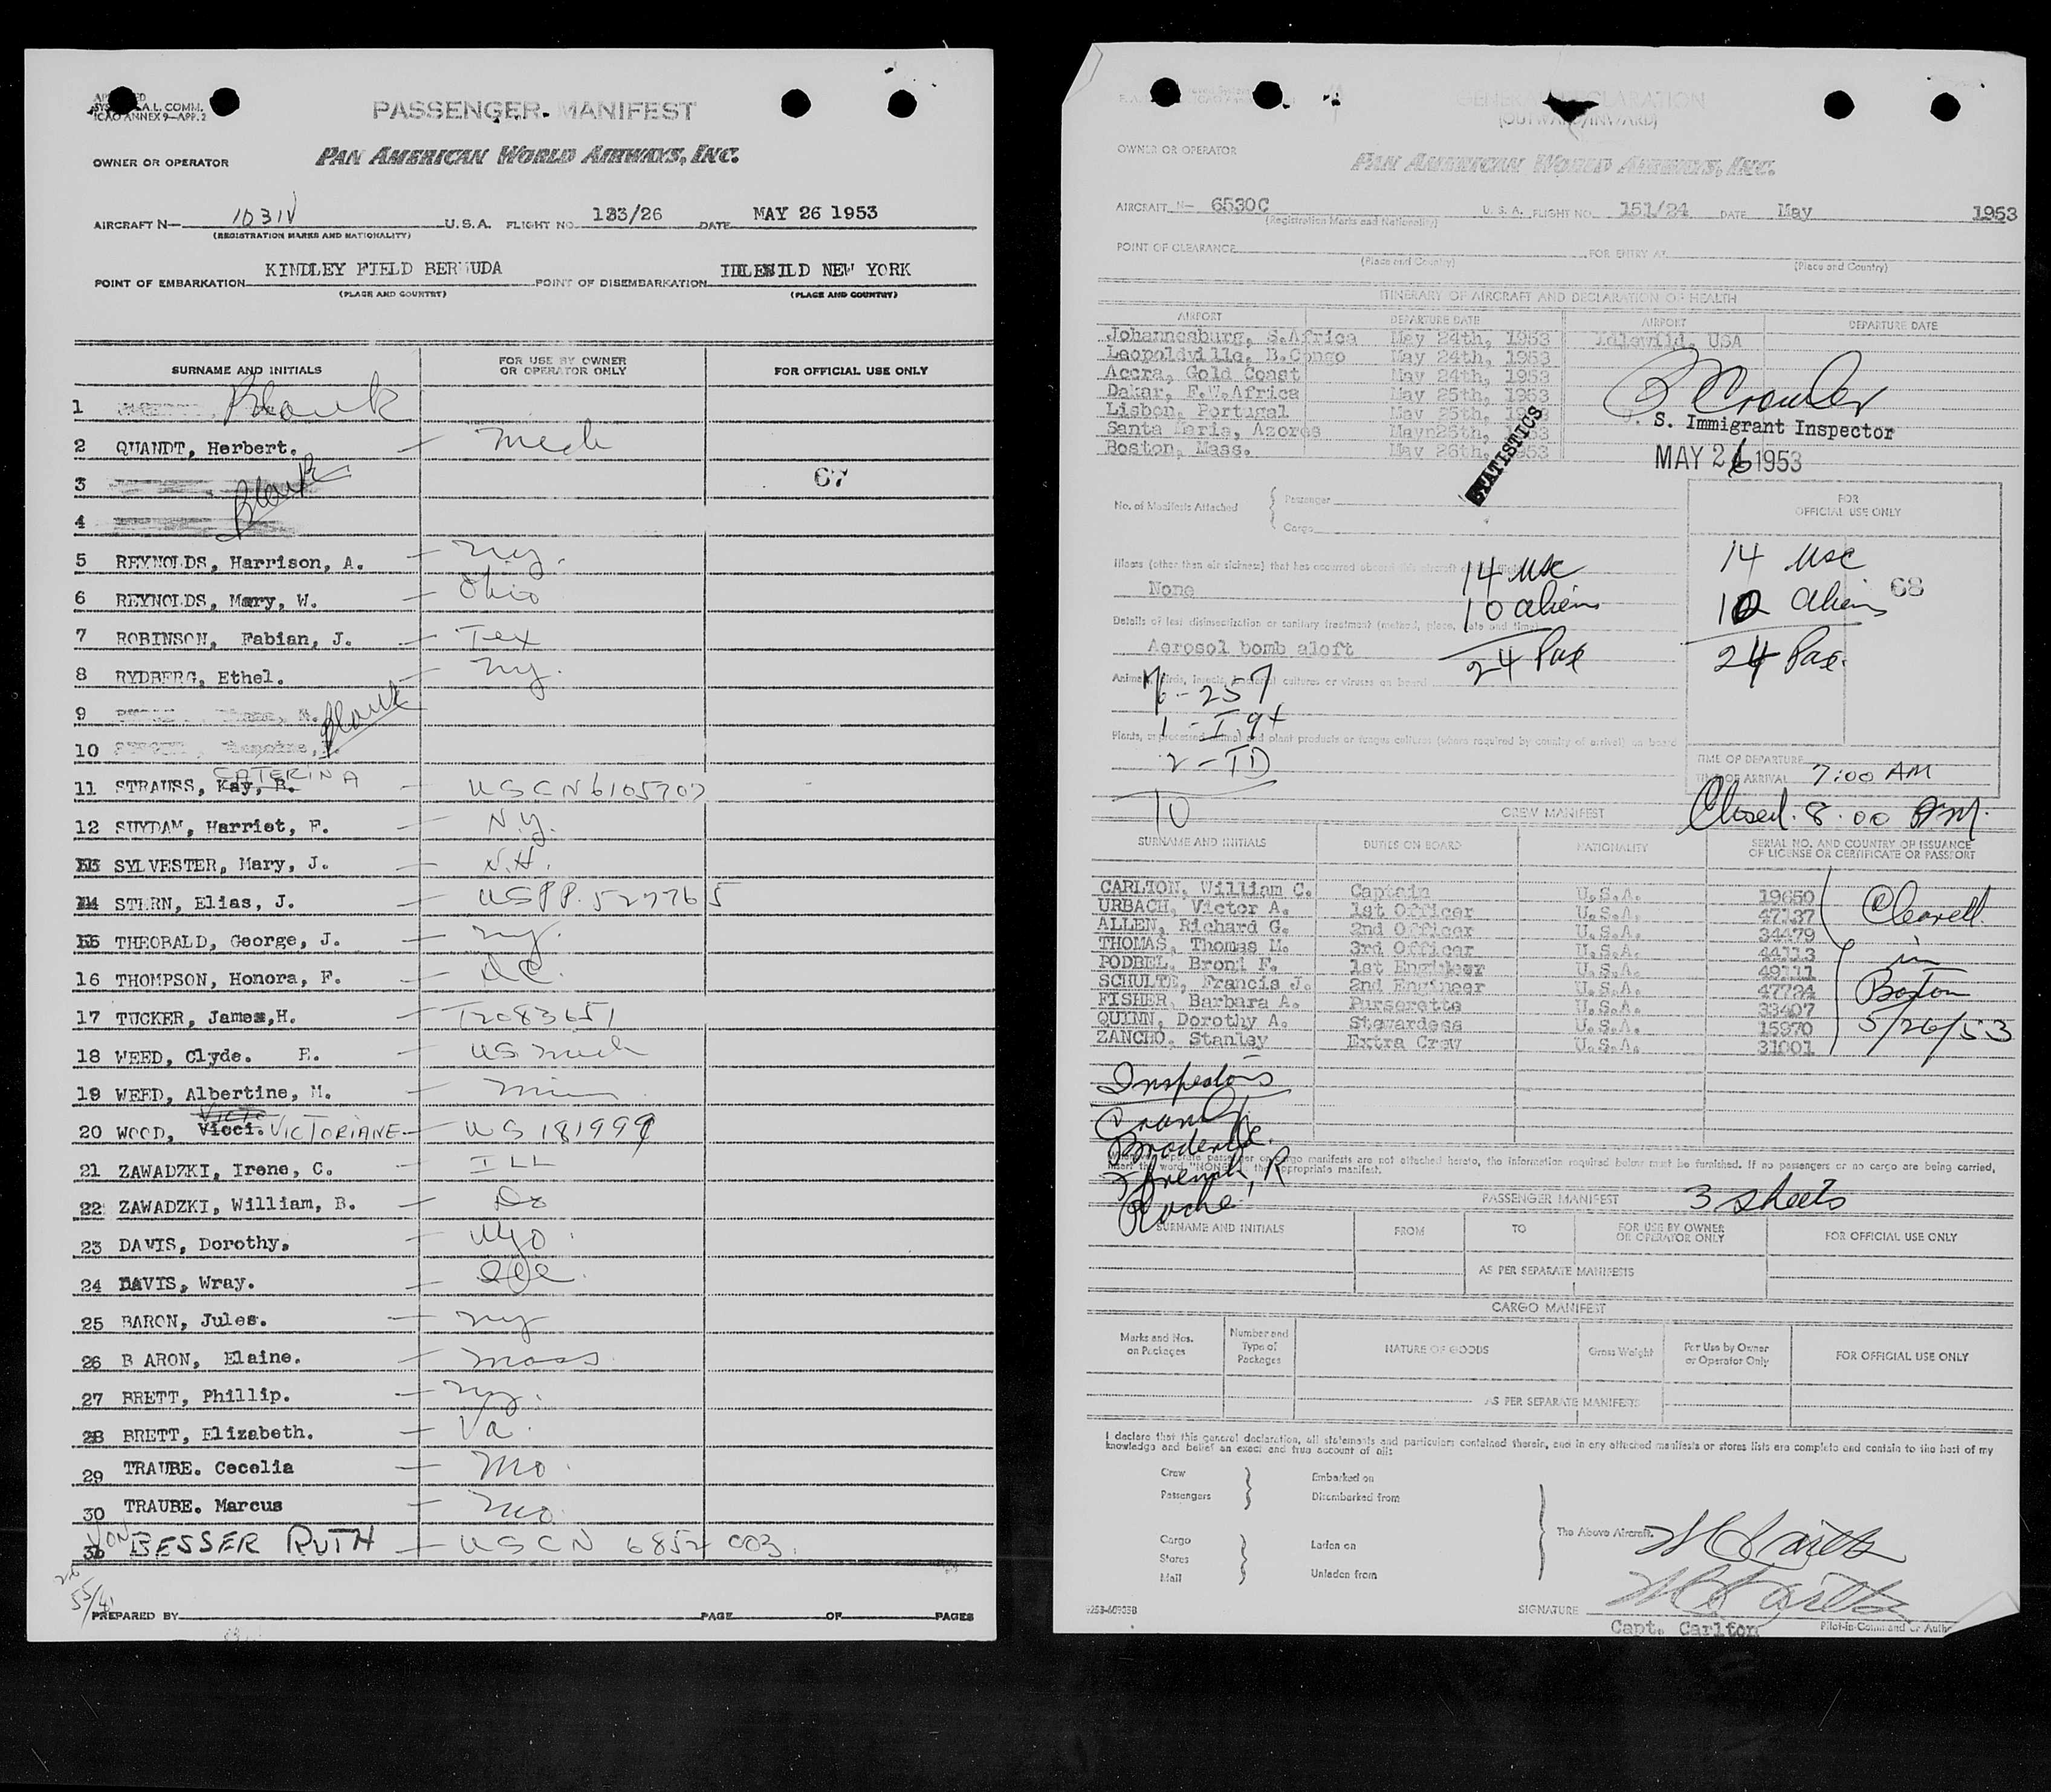 PASSENGER MANIFEST
SYS A.L. COMM.
ICAO ANNEX 9—APP. 2
OWNER OR OPERATOR PAN AMERICAN WORLD AIRWAYS, INC.
AIRCRAFT N— 1031V U.S.A. FLIGHT NO. 133/26 DATE MAY 26 1953
(REGISTRATION MARKS AND NATIONALITY)
POINT OF EMBARKATION KINDLEY FIELD BERMUDA POINT OF DISEMBARKATION NEW YORK
(PLACE AND COUNTRY) (PLACE AND COUNTRY)
SURNAME AND INITIALS FOR USE BY OWNER OR OPERATOR ONLY FOR OFFICIAL USE ONLY
1 Blank
2 QUANDT, Herbert. — Mech
3 Blank 67
4
5 REYNOLDS, Harrison, A. — ny.
6 REYNOLDS, Mary, W. — Ohio
7 ROBINSON, Fabian, J. — Tex
8 RYDBERG, Ethel. — ny.
9 Blank
10
11 STRAUSS, Kay, B. CATERINA — USCN6105707
12 SUYDAM, Harriet, F. — N.y.
13 SYLVESTER, Mary, J. — N.H.
14 STERN, Elias, J. — USPP. 527765
15 THEOBALD, George, J. — ny.
16 THOMPSON, Honora, F. — DC.
17 TUCKER, James,H. — T2083651
18 WEED, Clyde. E. — US
19 WEED, Albertine, M. —
20 WOOD, Vicci. VICTORIANE — US 181999
21 ZAWADZKI, Irene, C. — ILL
22 ZAWADZKI, William, B. — Do
23 DAVIS, Dorothy, — Wyo.
24 DAVIS, Wray. —
25 BARON, Jules. — ny
26 B ARON, Elaine. — mass
27 BRETT, Phillip. — ny.
28 BRETT, Elizabeth. — Va.
29 TRAUBE. Cecelia — Mo.
30 TRAUBE. Marcus — mo.
31 VON BESSER RUTH — USCN 6852 003.
PREPARED BY PAGE OF PAGES
GENERAL DECLARATION
(OUTWARD/INWARD)
OWNER OR OPERATOR PAN AMERICAN WORLD AIRWAYS, INC.
AIRCRAFT N— 6530C U. S. A. FLIGHT NO. 151/24 DATE May 1953
(Registration Marks and Nationality)
POINT OF CLEARANCE FOR ENTRY AT
(Place and Country) (Place and Country)
ITINERARY OF AIRCRAFT AND DECLARATION OF HEALTH
AIRPORT DEPARTURE DATE AIRPORT DEPARTURE DATE
Johannesburg, S.Africa May 24th, 1953 Idlewild, USA
Leopoldville, B.Congo May 24th, 1953
Accra, Gold Coast May 24th, 1953
Dakar, F.W.Africa May 25th, 1953
Lisbon, Portugal May 25th, 1953
Santa Maria, Azores Mayn25th, 1953
Boston, Mass. May 26th, 1953
STATISTICS
U. S. Immigrant Inspector
MAY 26 1953
No. of Manifests Attached Passenger
Cargo
FOR OFFICIAL USE ONLY
Illness (other than air sickness) that has occurred aboard
None
14 USC
10 aliens
24 Pax
14 USC
10 aliens
24 Pax.
68
Details of last disinsectization or sanitary treatment (method, place, date and time)
Aerosol bomb aloft
cultures or viruses on board
7 - 257
1 - I 94
2 - TD
10
Plants, plant products or fungus cultures (where required by country of arrival) on board
TIME OF DEPARTURE
TIME OF ARRIVAL 7:00 AM
Closed. 8.00 AM.
CREW MANIFEST
SURNAME AND INITIALS DUTIES ON BOARD NATIONALITY SERIAL NO. AND COUNTRY OF ISSUANCE OF LICENSE OR CERTIFICATE OR PASSPORT
CARLTON, William C. Captain U.S.A. 19650
URBACH, Victor A. 1st Officer U.S.A. 47137
ALLEN, Richard G. 2nd Officer U.S.A. 34479
THOMAS, Thomas M. 3rd Officer U.S.A. 44113
PODBEL, Broni F. 1st Engineer U.S.A. 49111
SCHULTE, Francis J. 2nd Engineer U.S.A. 47724
FISHER, Barbara A. Purserette U.S.A. 33407
QUINN, Dorothy A. Stewardess U.S.A. 15970
ZANCHO, Stanley Extra Crew U.S.A. 31001
in
Boston
5/26/53
Inspectors
Roche
manifests are not attached hereto, the information required below must be furnished. If no passengers or no cargo are being carried,
insert the word "NONE" the appropriate manifest.
PASSENGER MANIFEST 3 sheets
SURNAME AND INITIALS FROM TO FOR USE BY OWNER OR OPERATOR ONLY FOR OFFICIAL USE ONLY
AS PER SEPARATE MANIFESTS
CARGO MANIFEST
Marks and Nos. on Packages Number and Type of Packages NATURE OF GOODS Gross Weight For Use by Owner or Operator Only FOR OFFICIAL USE ONLY
AS PER SEPARATE MANIFESTS
I declare that this general declaration, all statements and particulars contained therein, and in any attached manifests or stores lists are complete and contain to the best of my
knowledge and belief an exact and true account of all:
Crew Embarked on
Passengers Disembarked from
The Above Aircraft.
Cargo Laden on
Stores
Mail Unladen from
SIGNATURE
Capt. Carlton Pilot-in-Command or